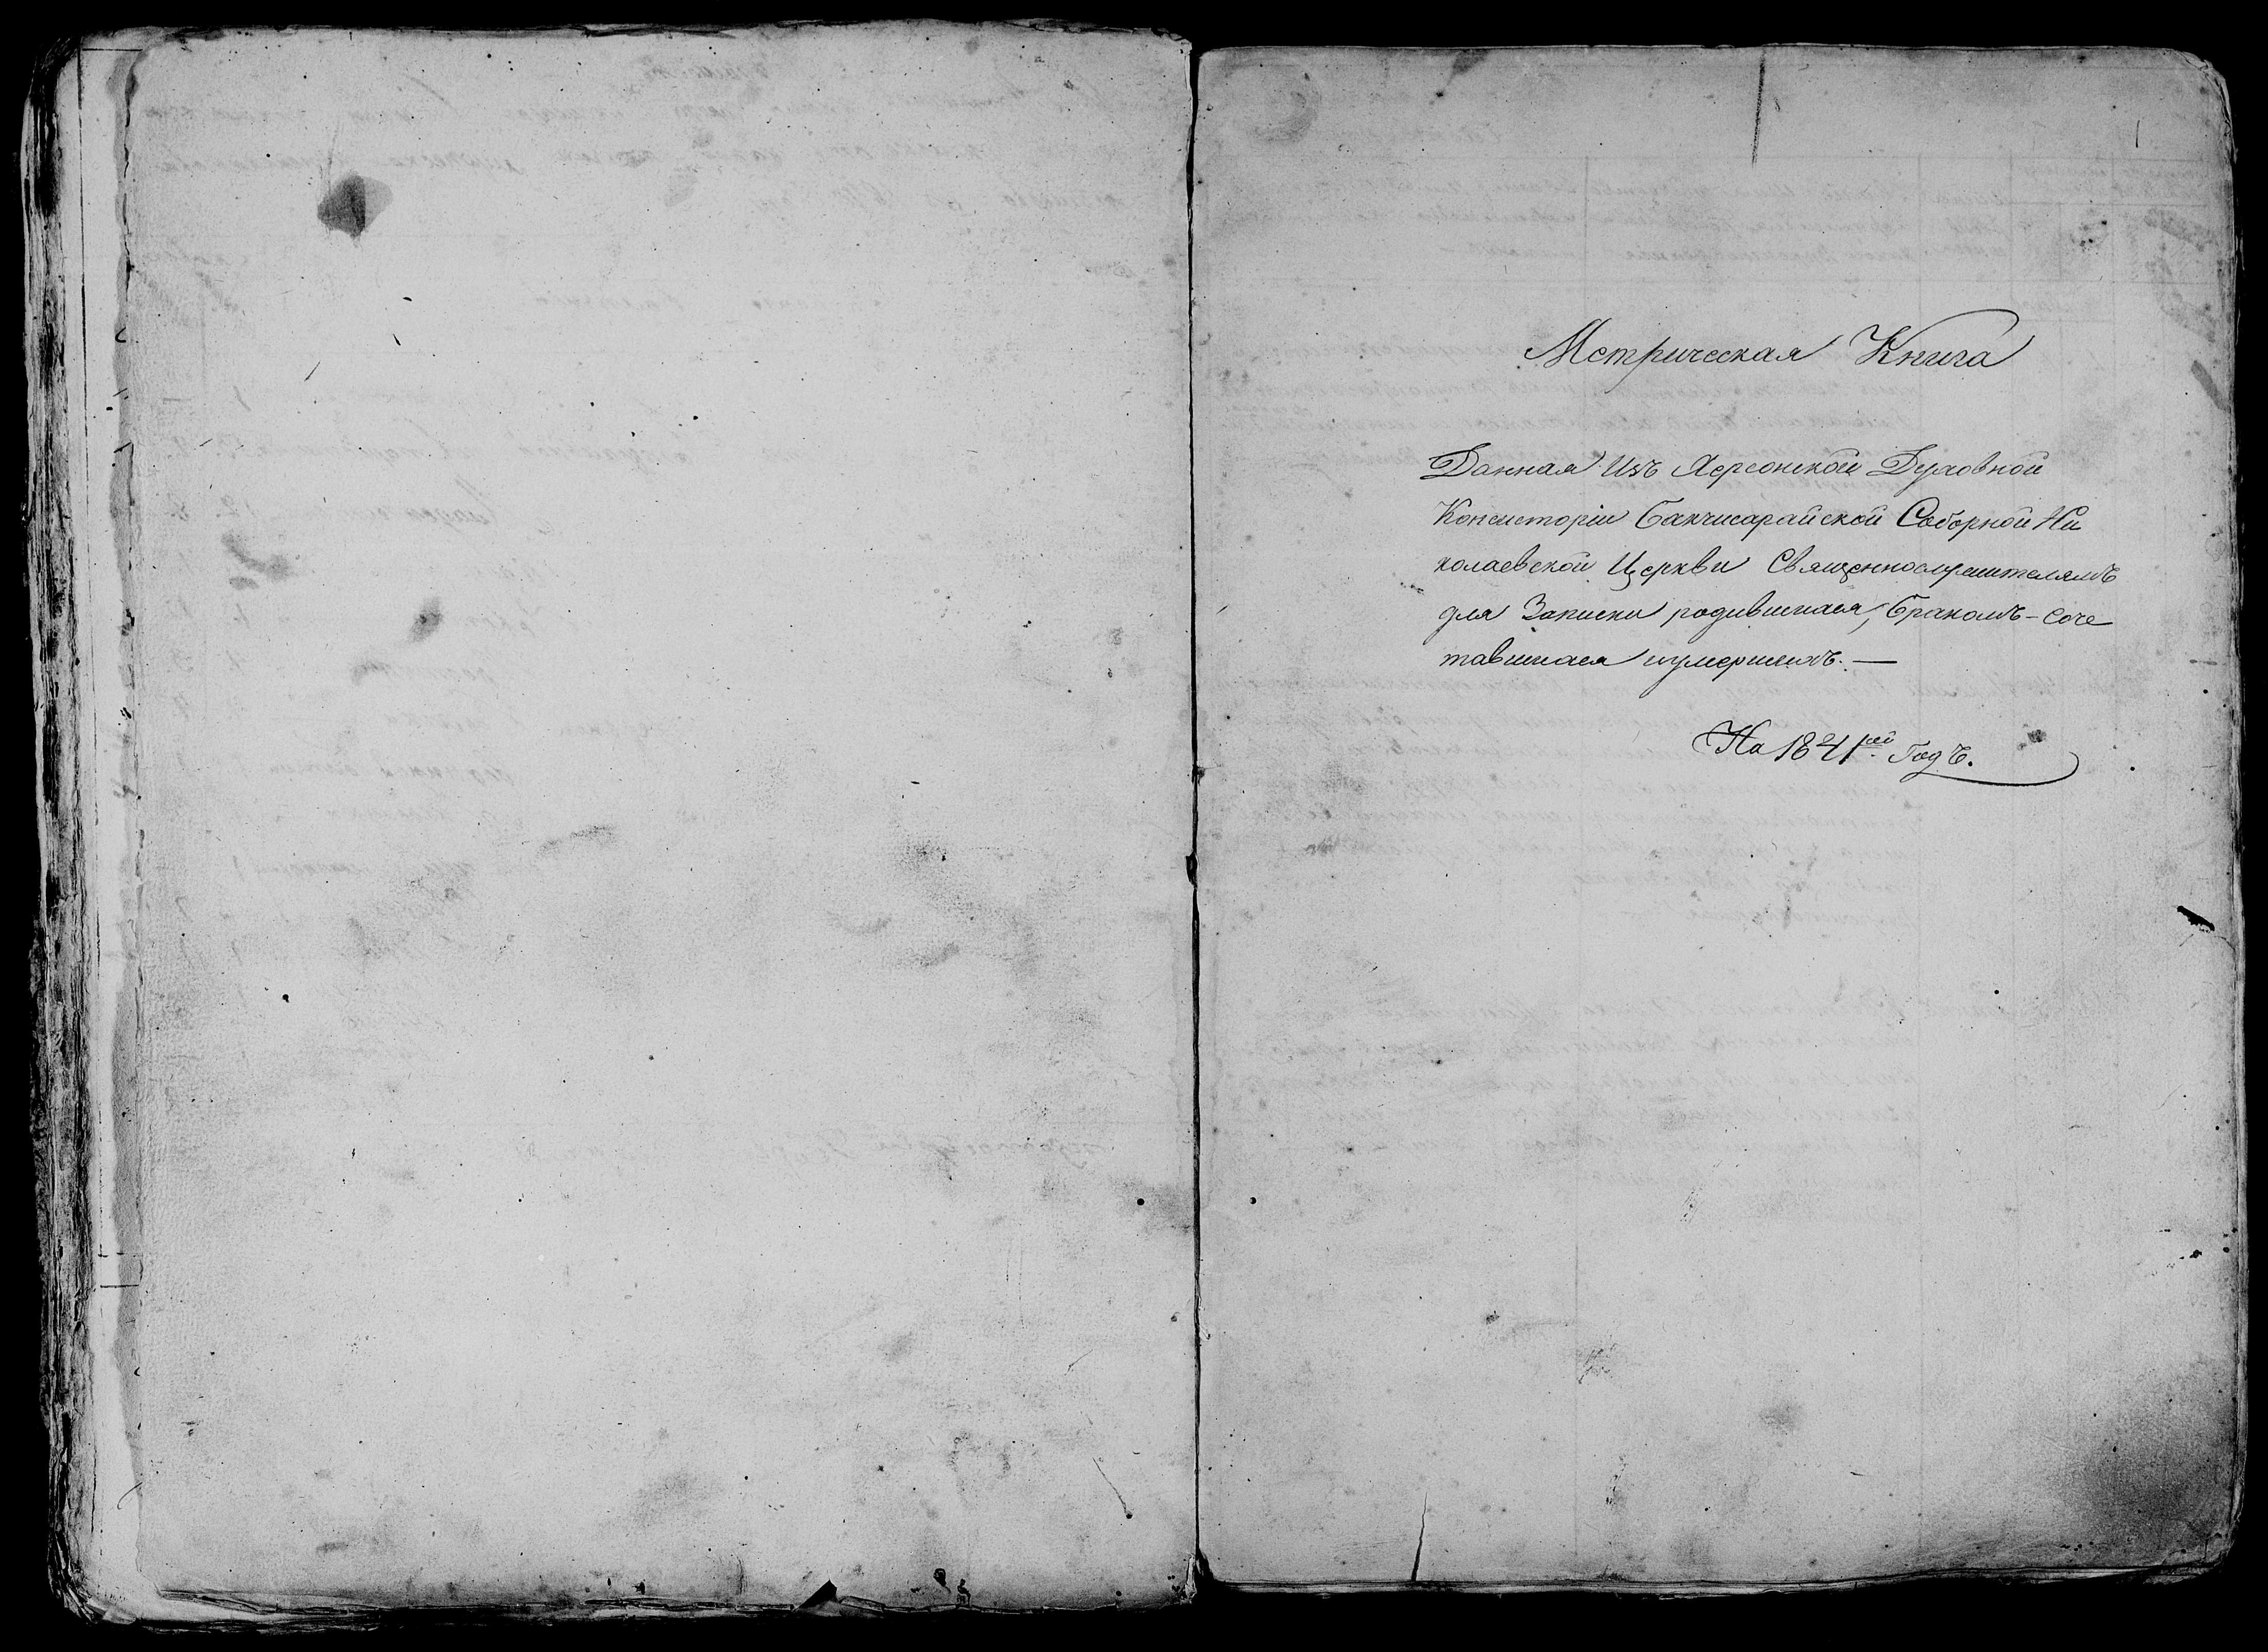 Метрическая Книга
Данная Изъ Херсонской Духовной
Консисторіи Бахчисарайской Соборной Ни
колаевской Церкви Священнослужителямъ
для Записки родившихся, бракомъ-соче
тавшихся и умершихъ. —
На 1841ый Годъ.